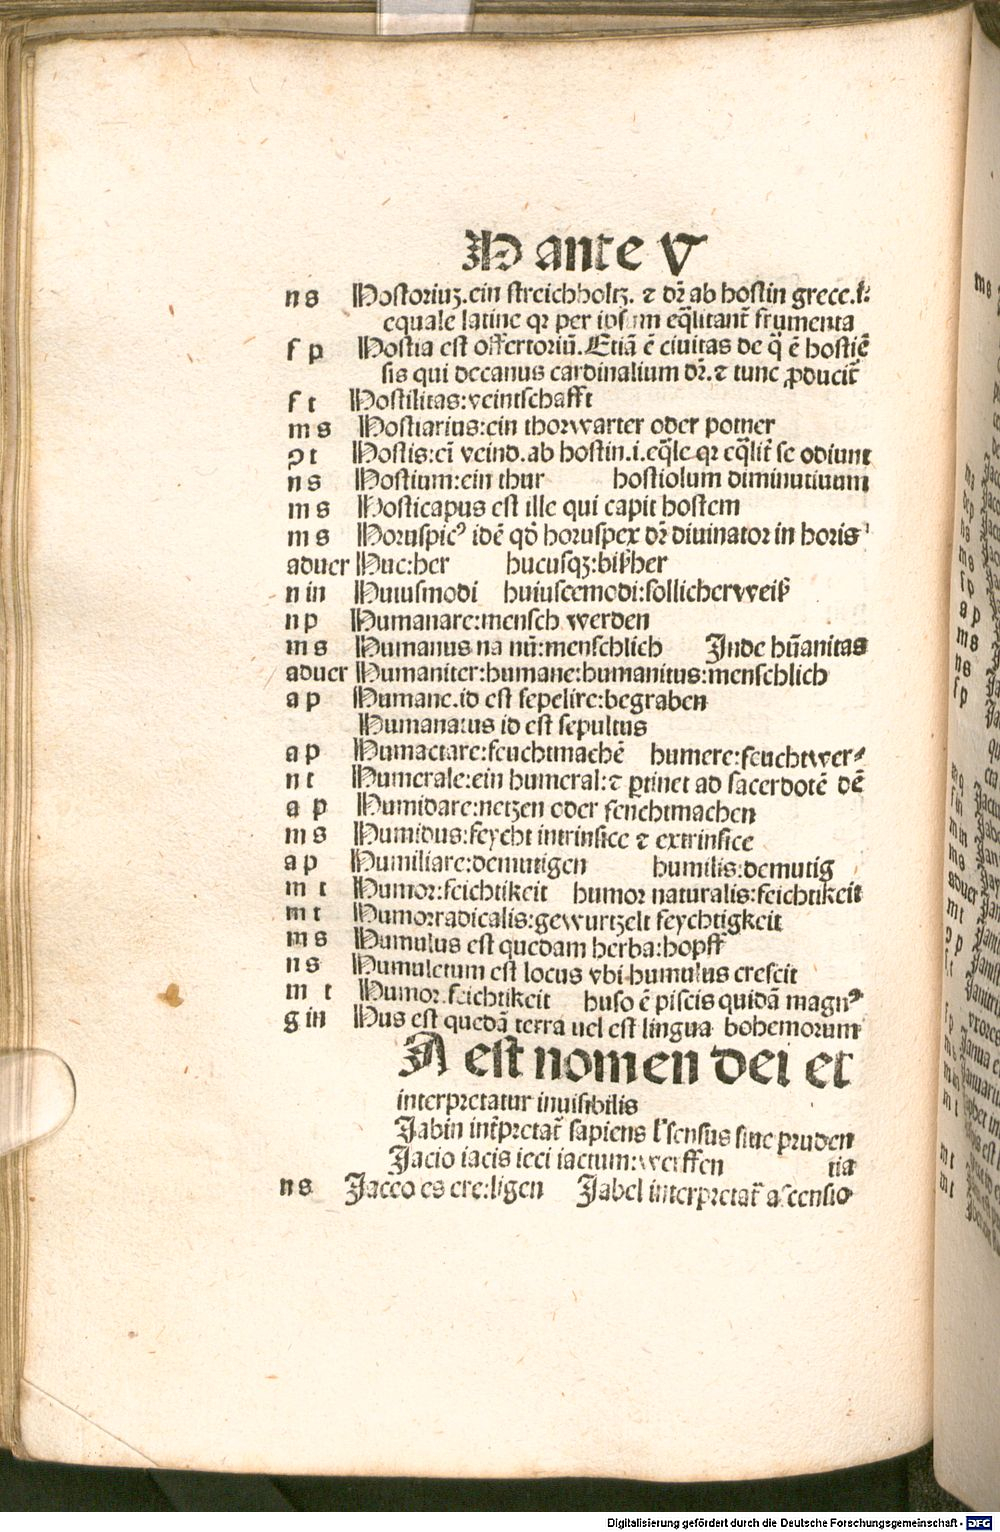 H ante V
n s Hostoriuʒ.ein streichholtʒ. ⁊ dr̄ ab hostin grece.
equale latine qꝛ per ipsum eq̄litant᷑ frumenta
f p Hostia est offertoriū.Etiā ē ciuitas de q̄ ē hostiē
sis qui decanus cardinalium dr̄.⁊ tunc ꝓducit᷑
f t Hostilitas:veintschafft
m s Hostiarius:ein thorwarter oder potner
ꝯ t Hostis:eī veind.ab hostin.i.eq̄le qꝛ eq̄lit᷑ se odiunt
n s Hostium:ein thur hostiolum diminutiuum
m s Hosticapus est ille qui capit hostem
m s Horuspicꝰ idē qd̄ horuspex dr̄ diuinator in horis
aduer Huc:her hucusqʒ:bißher
n in Huiusmodi huiuscemodi:sollicherweiß
n p Humanare:mensch werden
m s Humanus na nū:menschlich Inde hūanitas
aduer Humaniter:humane:humanitus:menschlich
a p Humane.id est sepelire:begraben
Humanatus id est sepultus
a p Humectare:feuchtmachē humere:feuchtwer⸗
n t Humerale:ein humeral:⁊ ꝑtinet ad sacerdotē dē
a p Humidare:netzen oder feuchtmachen
m s Humidus:feycht intrinsice ⁊ extrinsice
a p Humiliare:demutigen humilis:demutig
m t Humor:feichtikeit humor naturalis:feichtikeit
m t Humorradicalis:gewurtzelt feychtigkeit
m s Humulus est quedam herba:hopff
n s Humuletum est locus vbi humulus crescit
m t Humor.feichtikeit huso ē piscis quidā magnꝰ
g in Hus est quedā terra uel est lingua bohemorum
IA est nomen dei et
interpretatur inuisibilis
Jabin int᷑pretat᷑ sapiens l᷑ sensus siue pruden
Jacio iacis ieci iactum:werffen tia
n s Jaceo es ere:ligen Jabel interpretat᷑ ascensio
m s
Digitalisierung gefördert durch die Deutsche Forschungsgemeinschaft - DFG